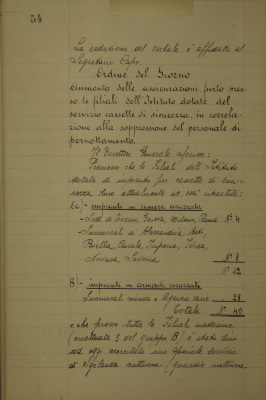 54
La redazione del verbale è affidata al
Segretario Capo.
Ordine del Giorno
Aumento delle assicurazioni furto pres-
so le filiali dell'Istituto dotate del
servizio cassette di sicurezza, in correla-
zione alla soppressione del personale di
pernottamento.
Il Direttore Generale riferisce:
Premesso che le Filiali dell'Istituto
dotate di impianti per cassette di sicu-
rezza sono attualmente 40 così ripartite:
A) - impianto in camera corazzata
- Sedi di Torino, Genova, Milano, Roma N° 4
- Succursali di Alessandria, Asti,
Biella, Casale, Imperia, Ivrea,
Novara, Savona N° 8
N° 12
B) - impianti in armadi corazzati
Succursali minori e Agenzie " 28
Totale N° 40
e che presso tutte le Filiali medesime
(eccettuate 3 del gruppo B) è stato sino
ad oggi esercitato uno speciale servizio
di vigilanza notturna (guardia notturna